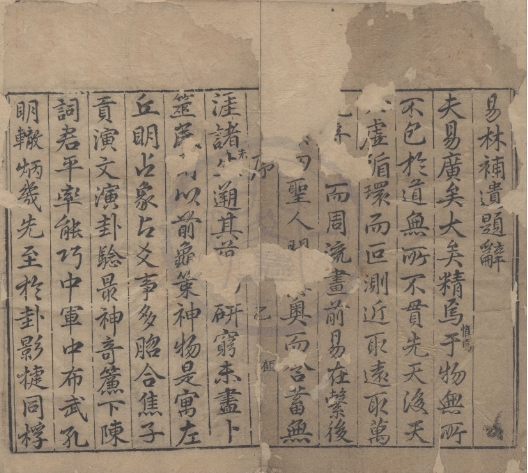 易林補遺題辭
夫易廣矣大矣精焉于物無所
不包於道無所不貫先天後天
虛循環而叵測近取遠取萬
而周流畫前易在繫後
聖人 奧而含蓄無
涯諸 遡其 研窮未盡卜
筮 以前龜策神物是寓左
丘明占象占爻事多脗合焦子
貢演文演卦驗最神奇簾下陳
詞君平率能巧中軍中布武孔
明轍炳幾先至於卦影揵同桴